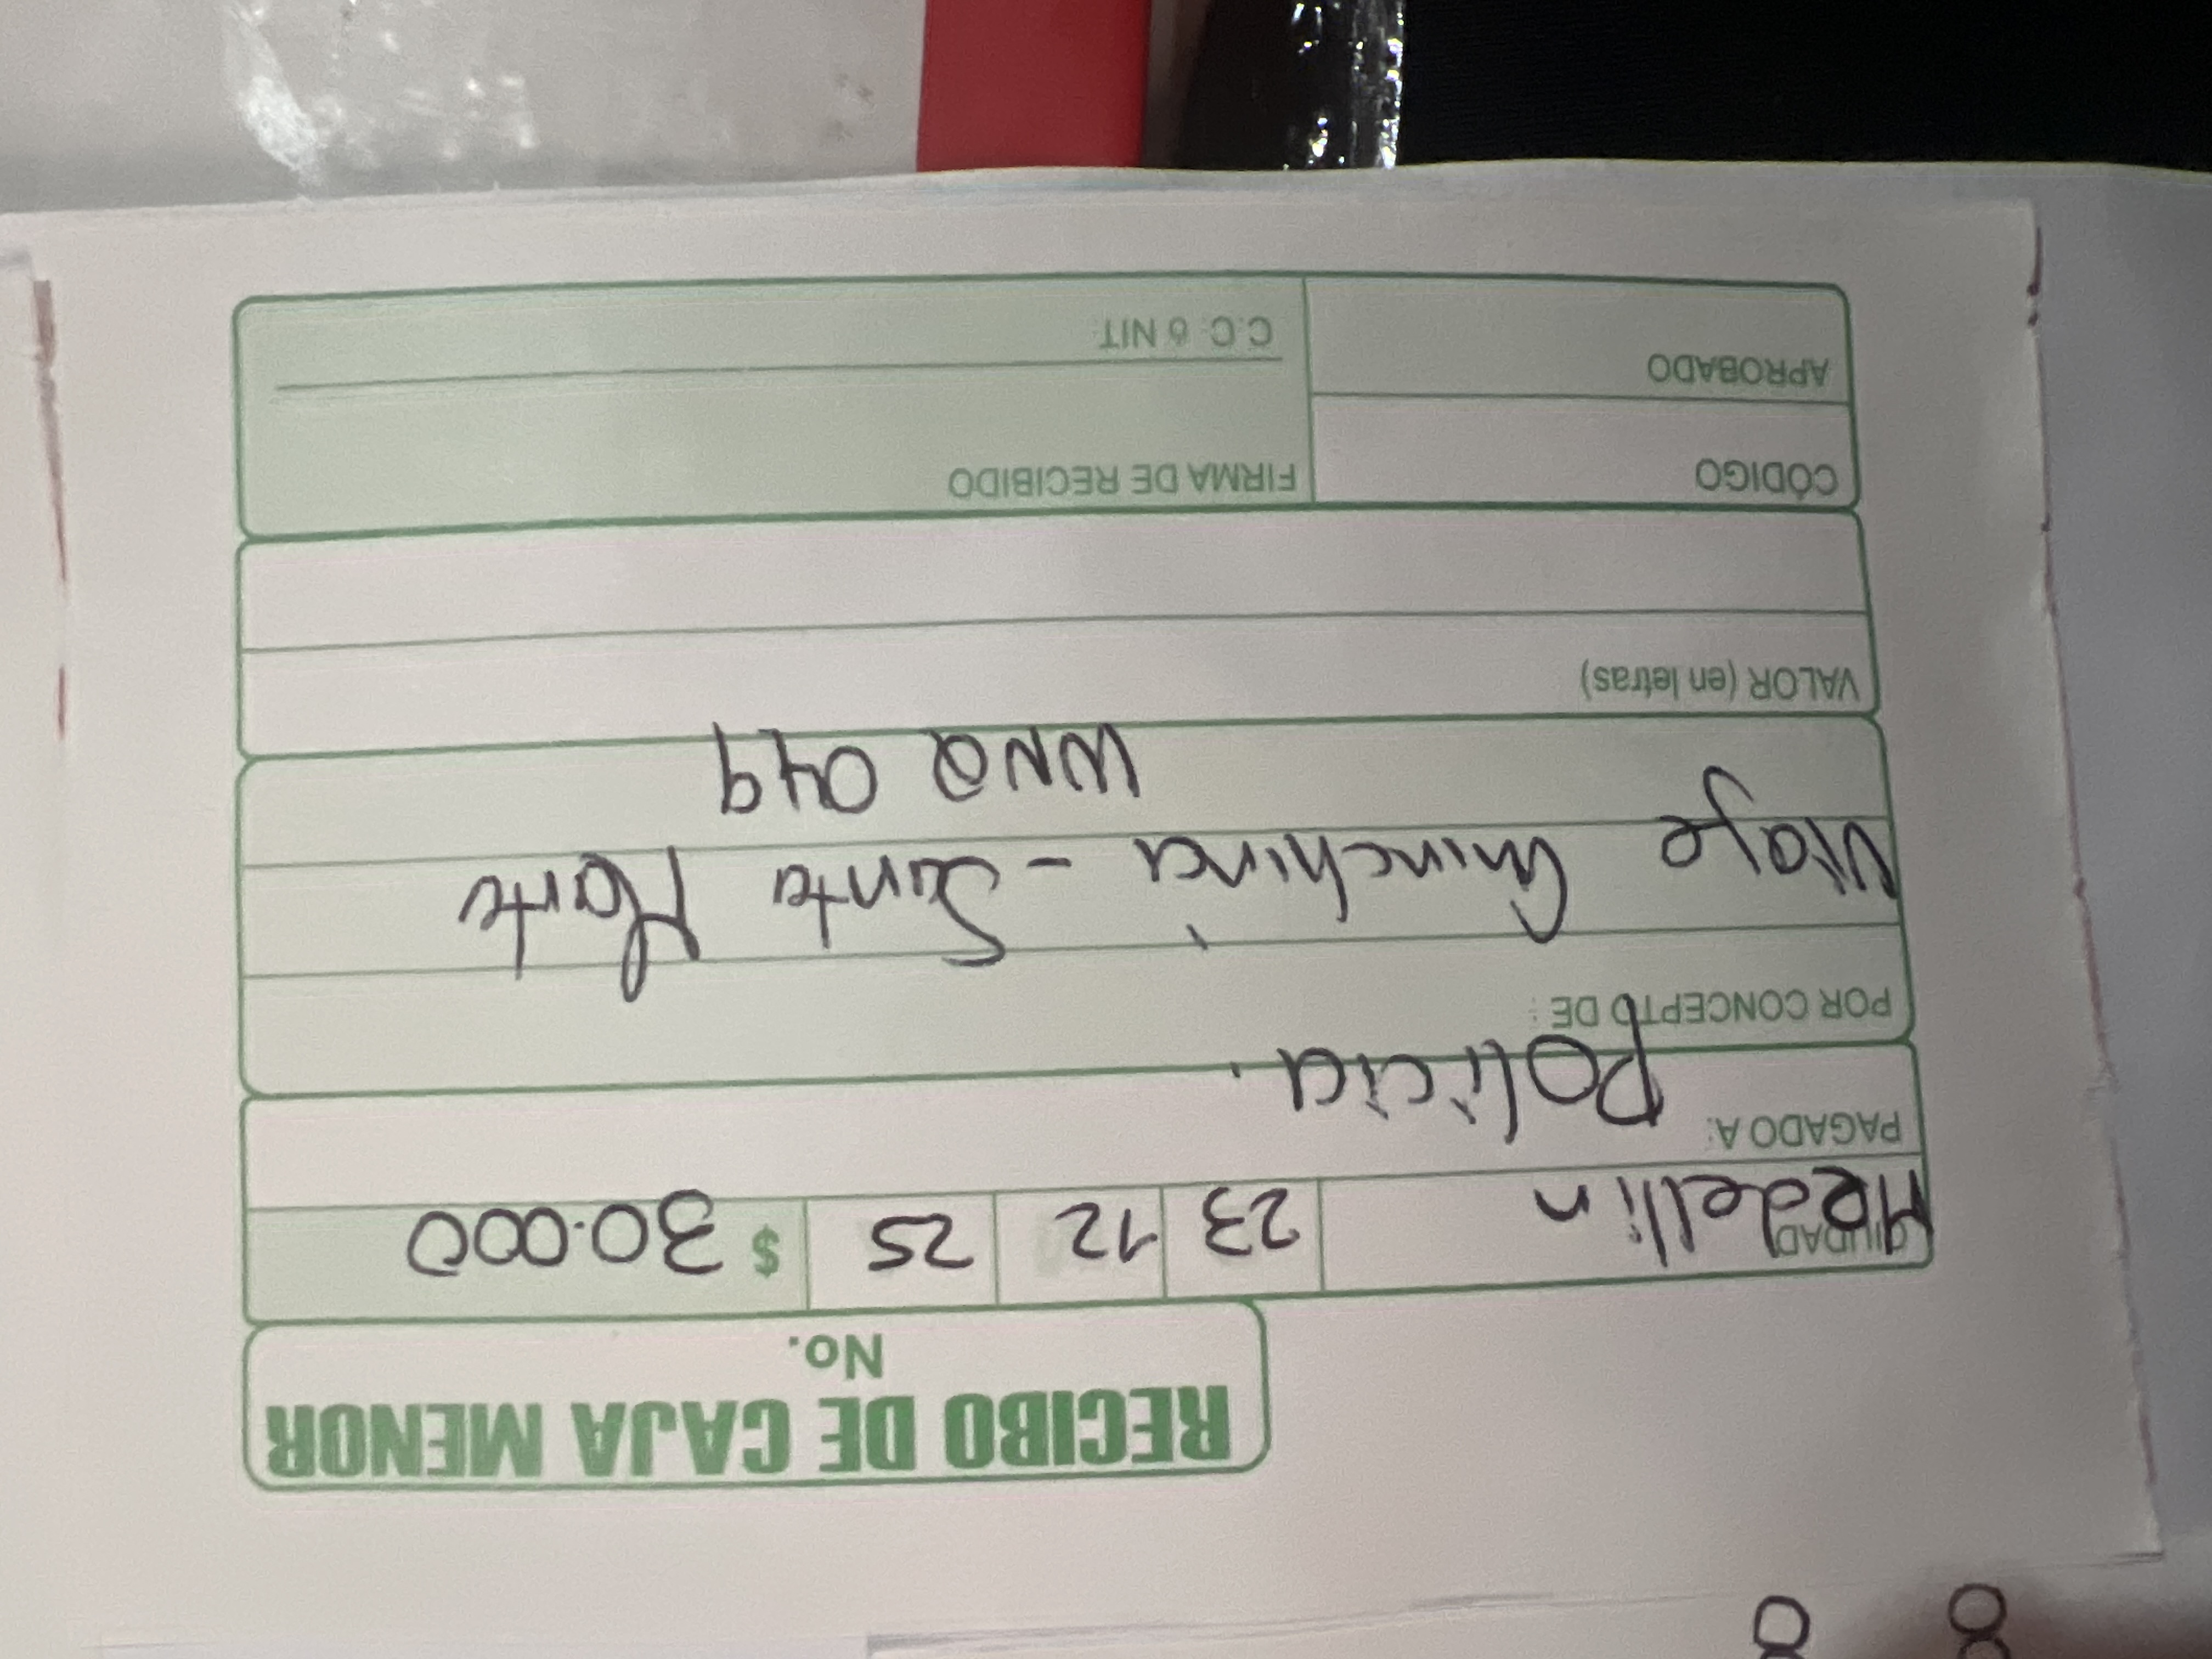 RECIBO DE CAJA MENOR
No.
CIUDAD Medellin 23 12 25 $ 30.000
PAGADO A: Policia.
POR CONCEPTO DE :
Viaje Chinchina - Santa Marta
WNQ 049
VALOR (en letras)
CÓDIGO
FIRMA DE RECIBIDO
APROBADO
C.C. ó NIT.